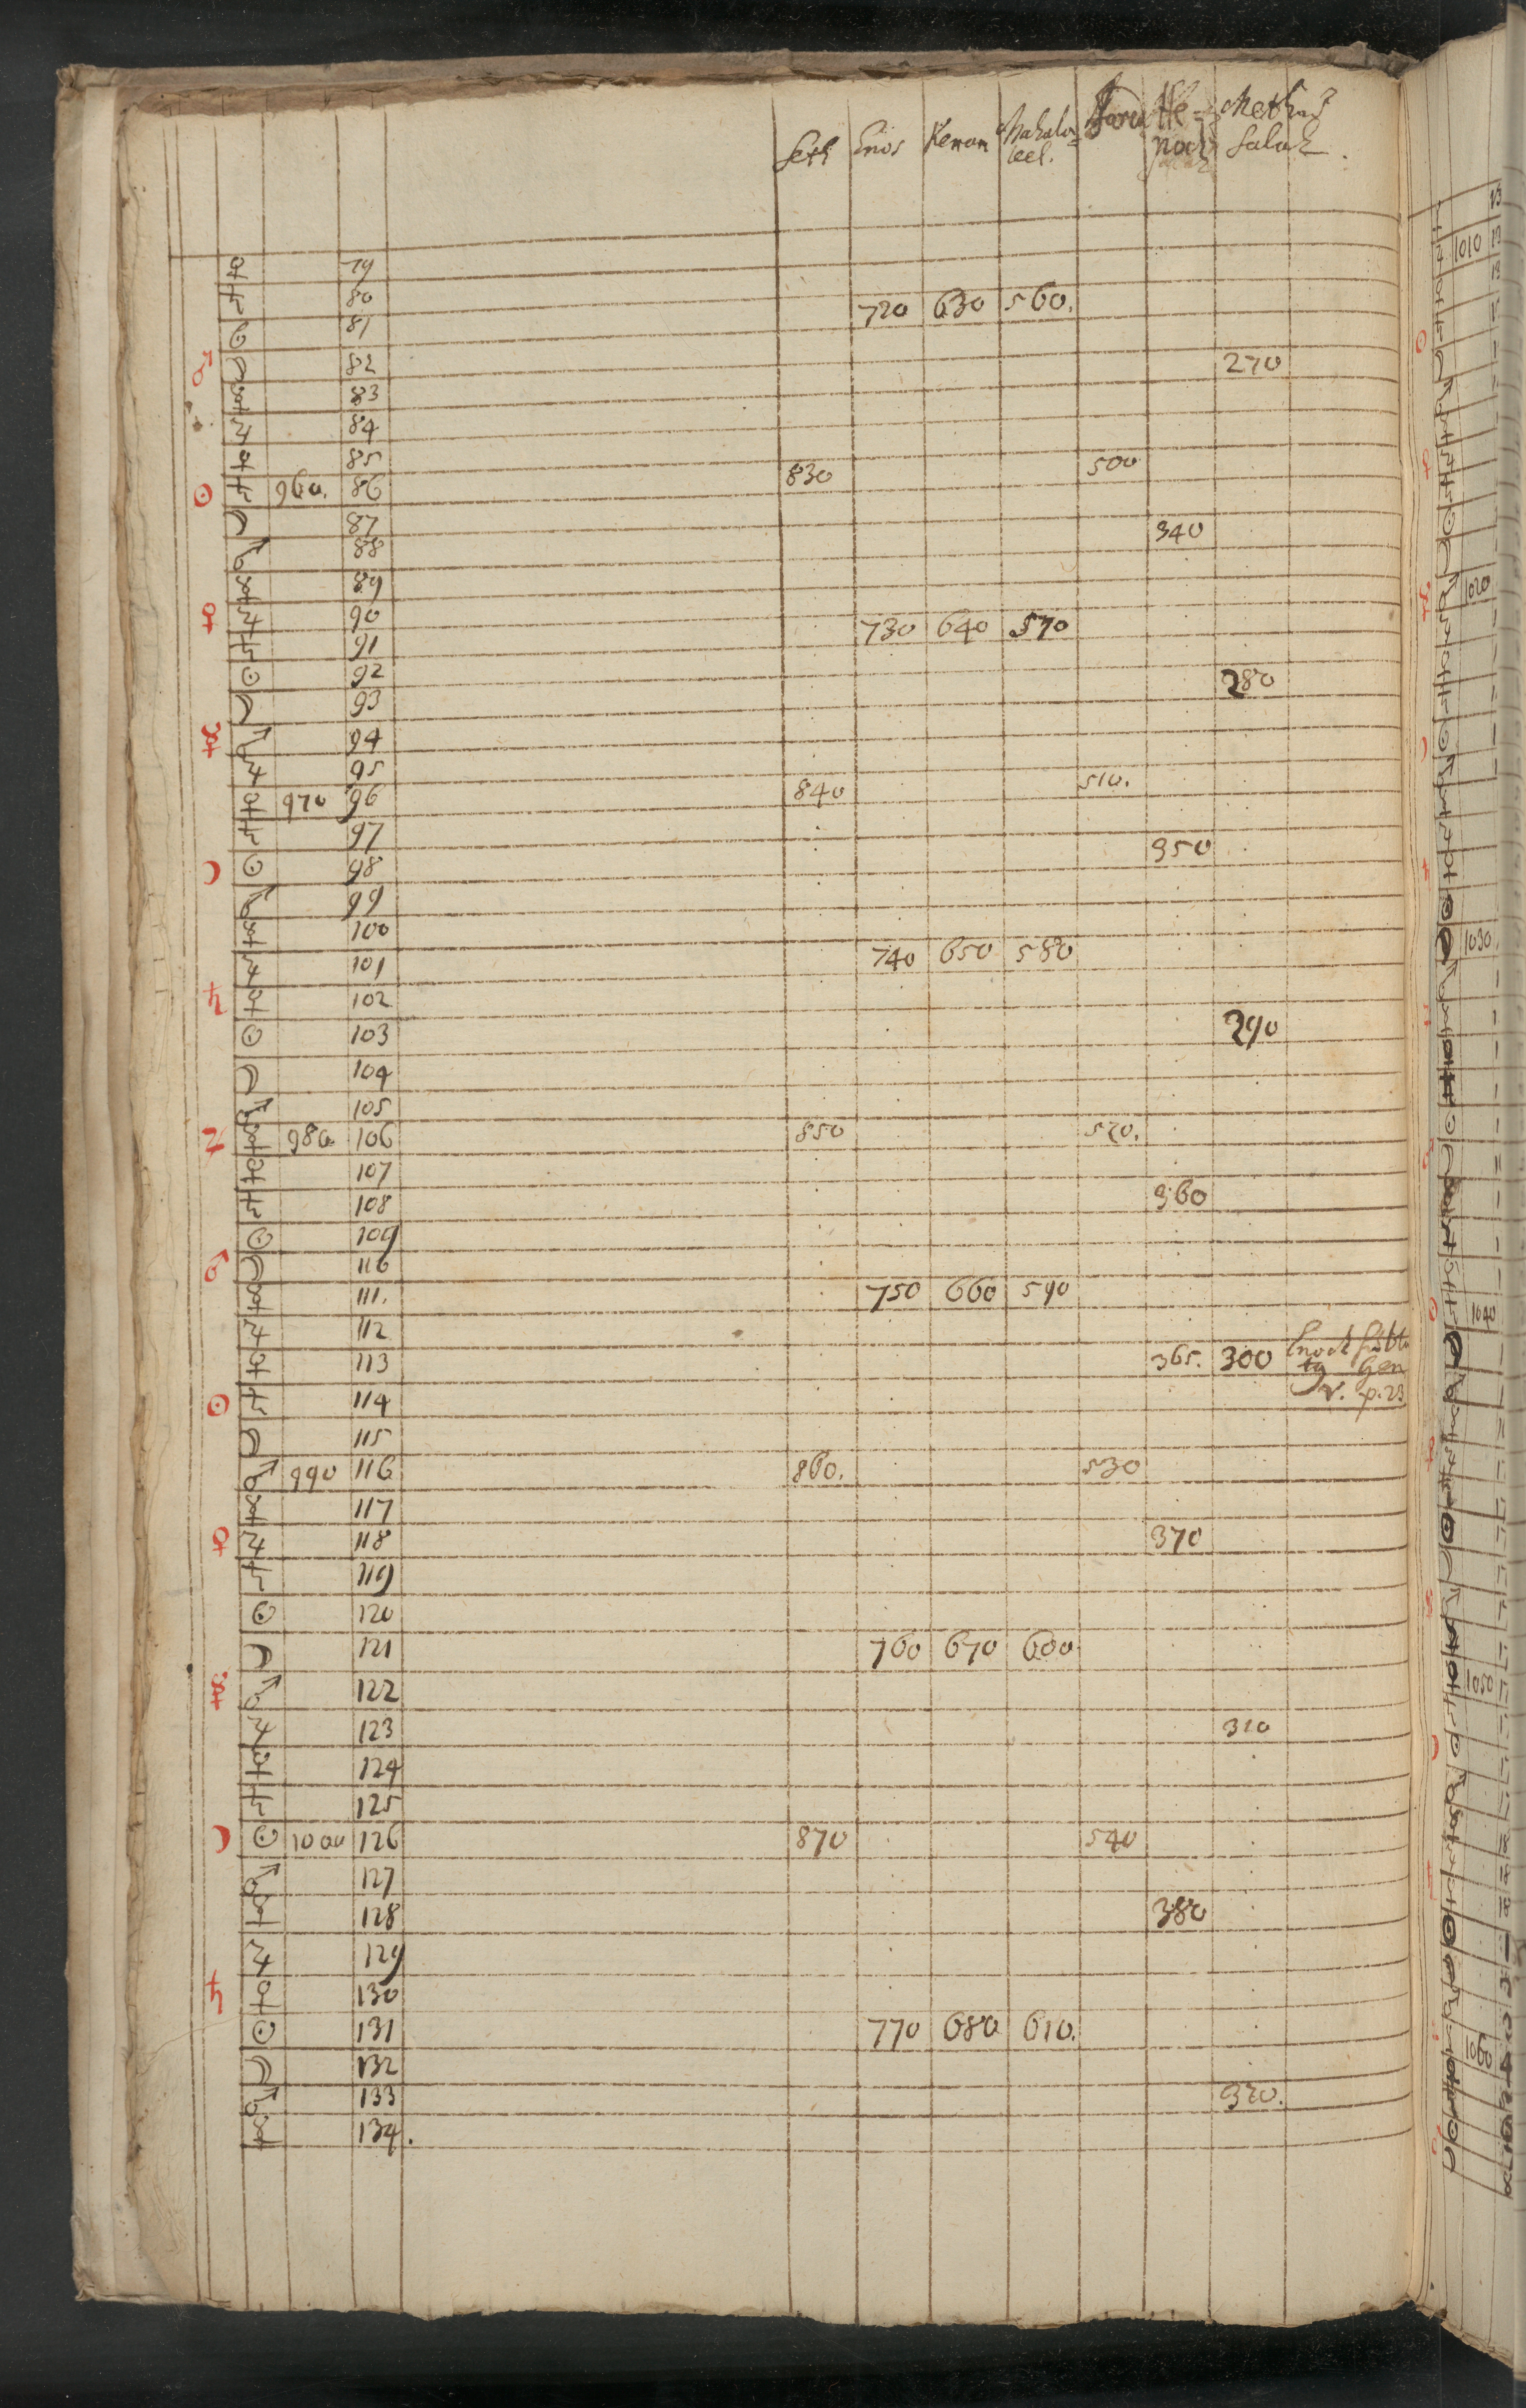 Seth Enos Kenan Mahala= leel. Jared He= noch Methu= salah.
♀ 79
♄ 80 720 630 560.
☉ 81
♂ ☾ 82 270
☿ 83
♃ 84
♀ 85 500
☉ ♄ 960. 86 830
☾ 87 340
♂ 88
☿ 89
♀ ♃ 90 730 640 570
♄ 91
☉ 92 280
☾ 93
☿ ♂ 94
♃ 95 510.
♀ 970 96 840
♄ 97 350
☽ ☉ 98
♂ 99
☿ 100
♃ 101 740 650 580
♄ ♀ 102
☉ 103 290
☾ 104
♂ 105
♃ ☿ 980. 106 850 520.
♀ 107
♄ 108 360
☉ 109
♂ ☾ 110
☿ 111. 750 660 590
♃ 112
♀ 113 365. 300 Enoch
☉ ♄ 114 v. p. 23
☾ 115
♂ 990 116 860. 530
☿ 117
♀ ♃ 118 370
♄ 119
☉ 120
☾ 121 760 670 600
☿ ♂ 122
♃ 123 310
♀ 124
♄ 125
☽ ☉ 1000 126 870 540
♂ 127
☿ 128 380
♃ 129
♄ ♀ 130
☉ 131 770 680 610.
☾ 132
♂ 133 320.
☿ 134.
1010
1020
1030
1040
1050
1060